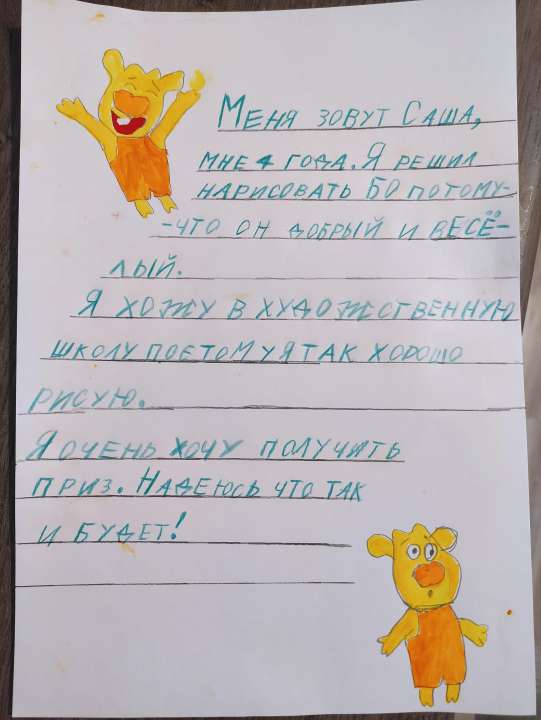 Меня зовут Саша,
мне 4 года. Я решил
нарисовать Бо потому-
-что он добрый и весё-
лый.
Я хожу в художественную
школу поетому я так хорошо
рисую.
Я очень хочу получить
приз. Надеюсь что так
и будет!